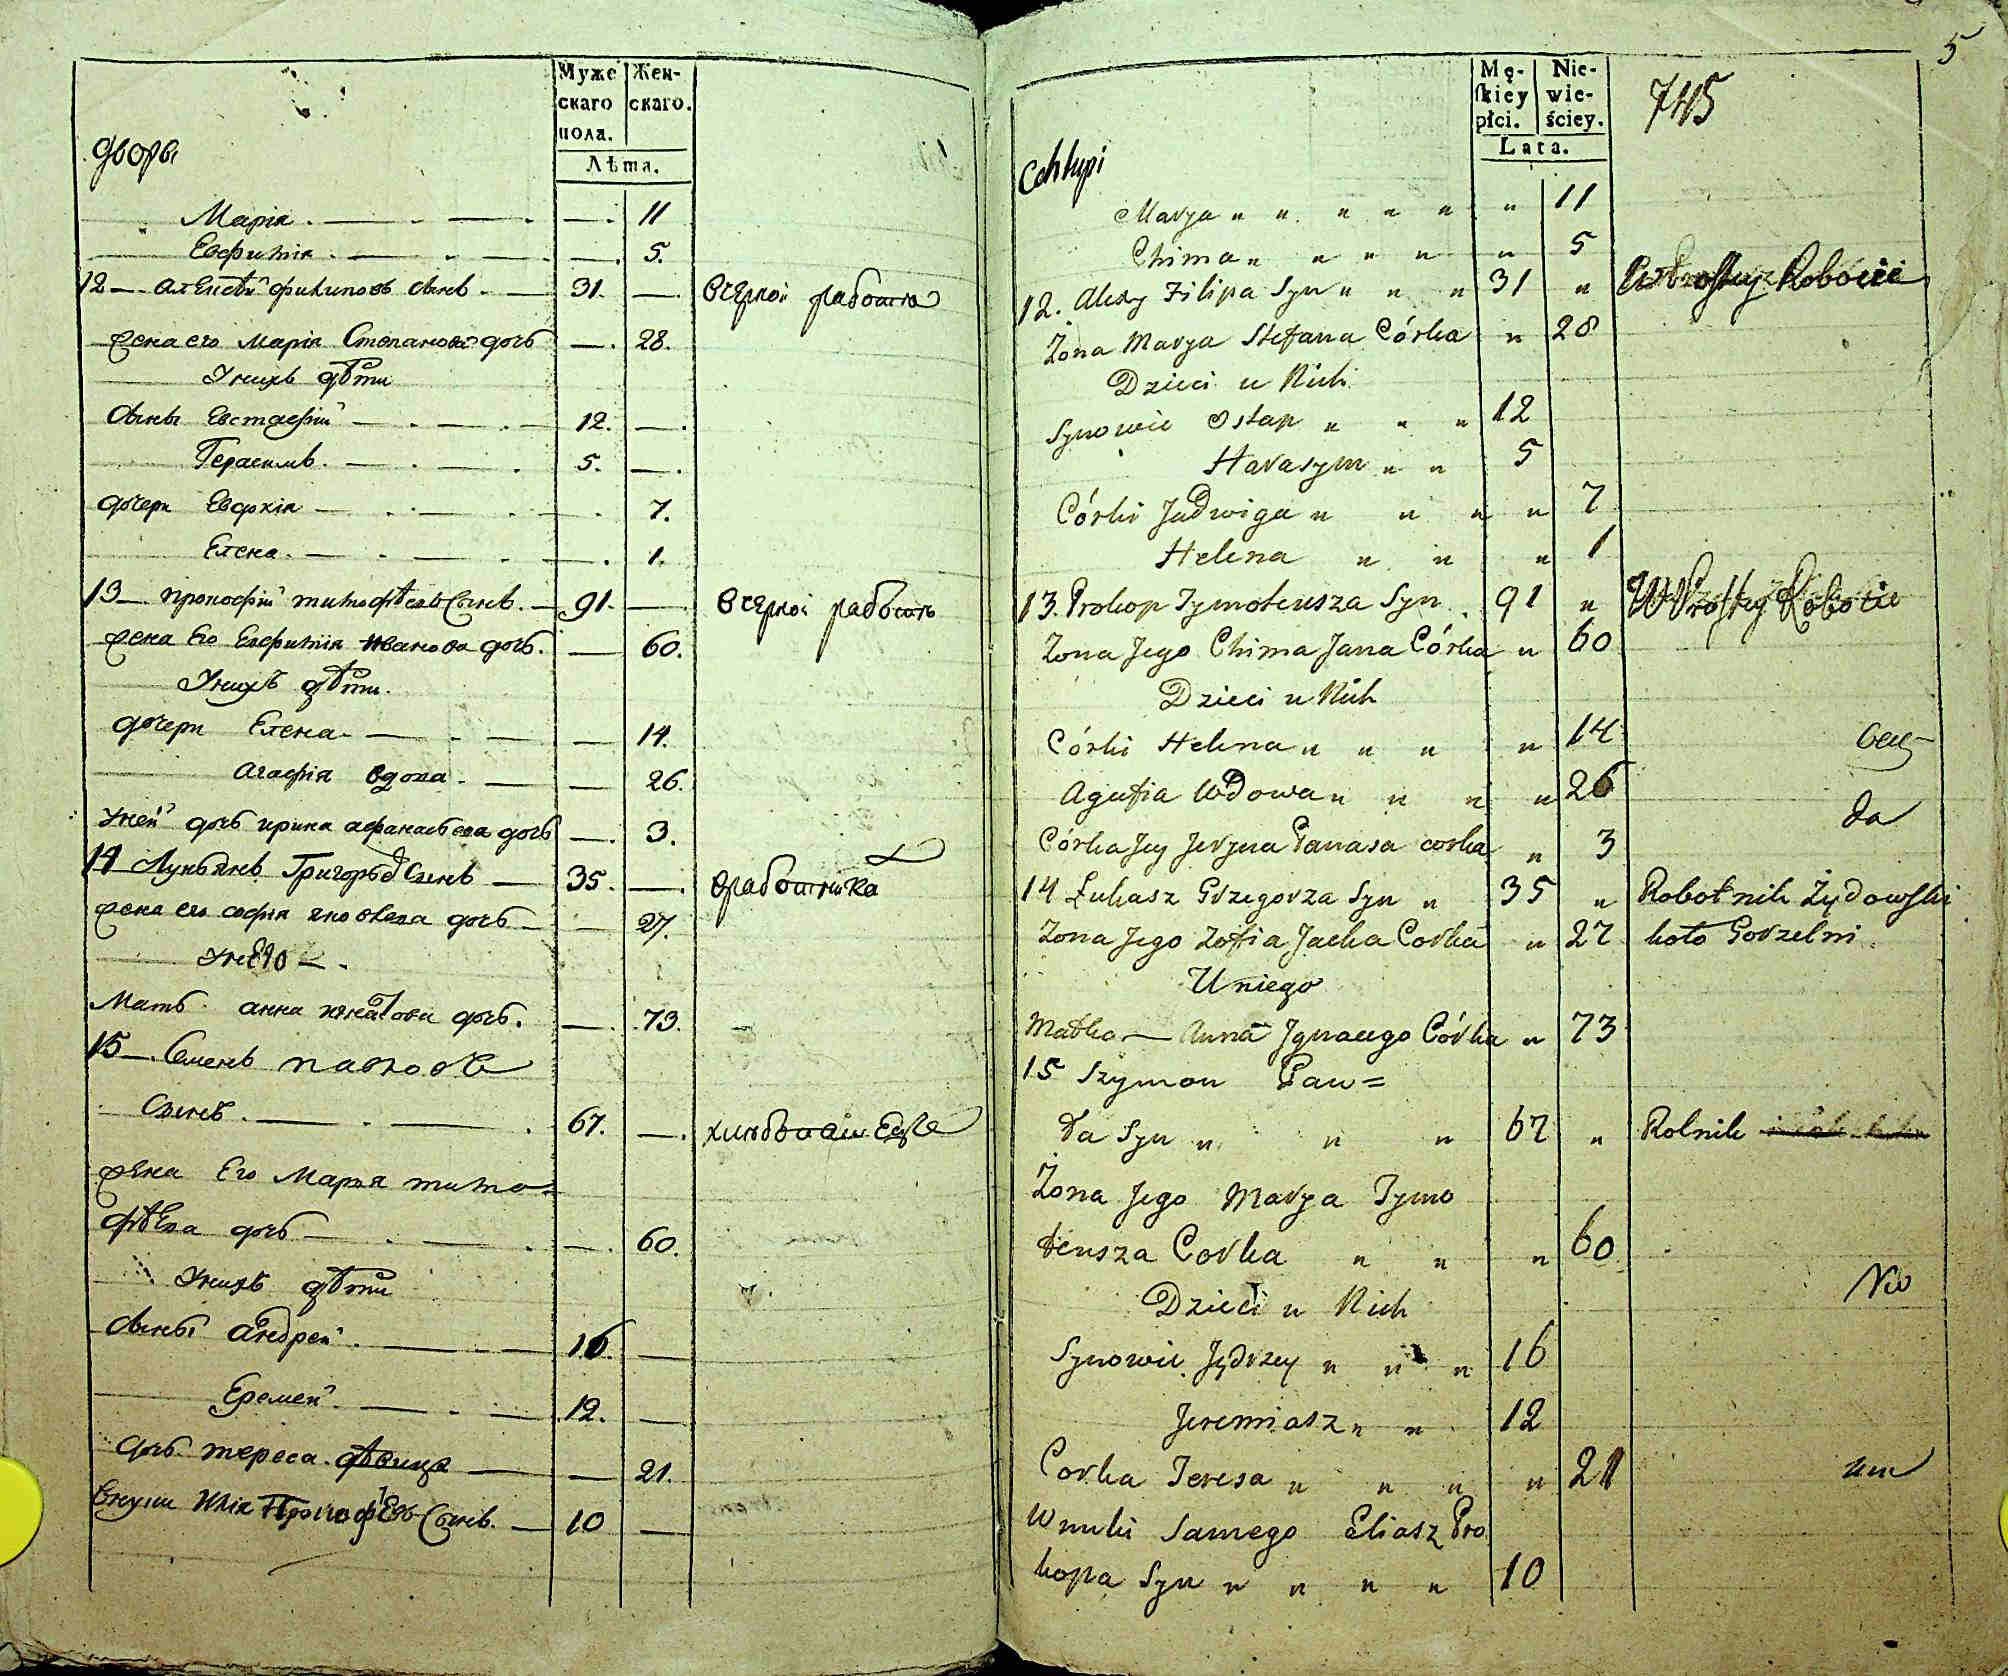 Муже
скаго
пола.
Жен-
скаго.
Лѣта.
дворы
Марія 11
Евфимія 5.
12 Алексѣй Филиповъ сынъ 31. в черной работе
жена его Марія Степанова дочь 28.
У нихъ дѣти
сыны Евстафій 12.
Герасимъ. 5.
дочери Евдокія 7.
Елена. 1.
13 Прокофій Тимофѣевъ Сынъ. 91. в черной работе
жена Его Евфимія Иванова дочь. 60.
У нихъ дѣти.
дочери Елена 14.
Агафія вдова. 26.
У ней дочь Ирина Афанасьева дочь 3.
14 Лукьянъ Григорьевъ Сынъ 35. в работника
жена его Софія Яковлева дочь 27.
У него
Мать Анна Игнатова дочь. 73.
15 Семенъ Павловъ
Сынъ. 67.
жена Его Марья Тимо-
фѣева дочь 60.
У нихъ дѣти
сыны Андрей 16.
Еремей 12.
дочь Тереса дѣвица 21.
внуки Илія Прокофьевъ Сынъ. 10
5
Mę-
skiey
płci.
Nie-
wie-
ściey.
Lata.
745
Chłupi
Marya " " " " " " 11
Chima " " " " " 5
12. Alexy Filipa Syn " " " 31 " W Prostey Robocie
Żona Marya Stefana Córka " 28
Dzieci u Nich
Synowie Ostap " " " 12
Harasym " " 5
Córki Jadwiga " " " " 7
Helena " " " 1
13. Prokop Tymoteusza Syn 91 " W Prostey Robocie
Żona Jego Chima Jana Córka " 60
Dzieci u Nich
Córki Helena " " " " 14
Agafia Wdowa " " " " 26
da
Córka Jey Jeryna Panasa corka " 3
14 Łukasz Grzegorza Syn " 35 " Robotnik Żydowski
Żona Jego Zofia Jacka Corka " 27 koło Gorzelni
U niego
Matka — Anna Jgnacego Córka " 73
15 Szymon Paw=
ła Syn " " " 67 " Rolnik
Żona Jego Marya Tymo
teusza Corka " " " 60
Dzieci u Nich
Synowie Jędrzey " " " 16
Jeremiasz " " 12
Corka Teresa " " " " 21
Wnuki Samego Eliasz Pro
kopa Syn " " " " 10